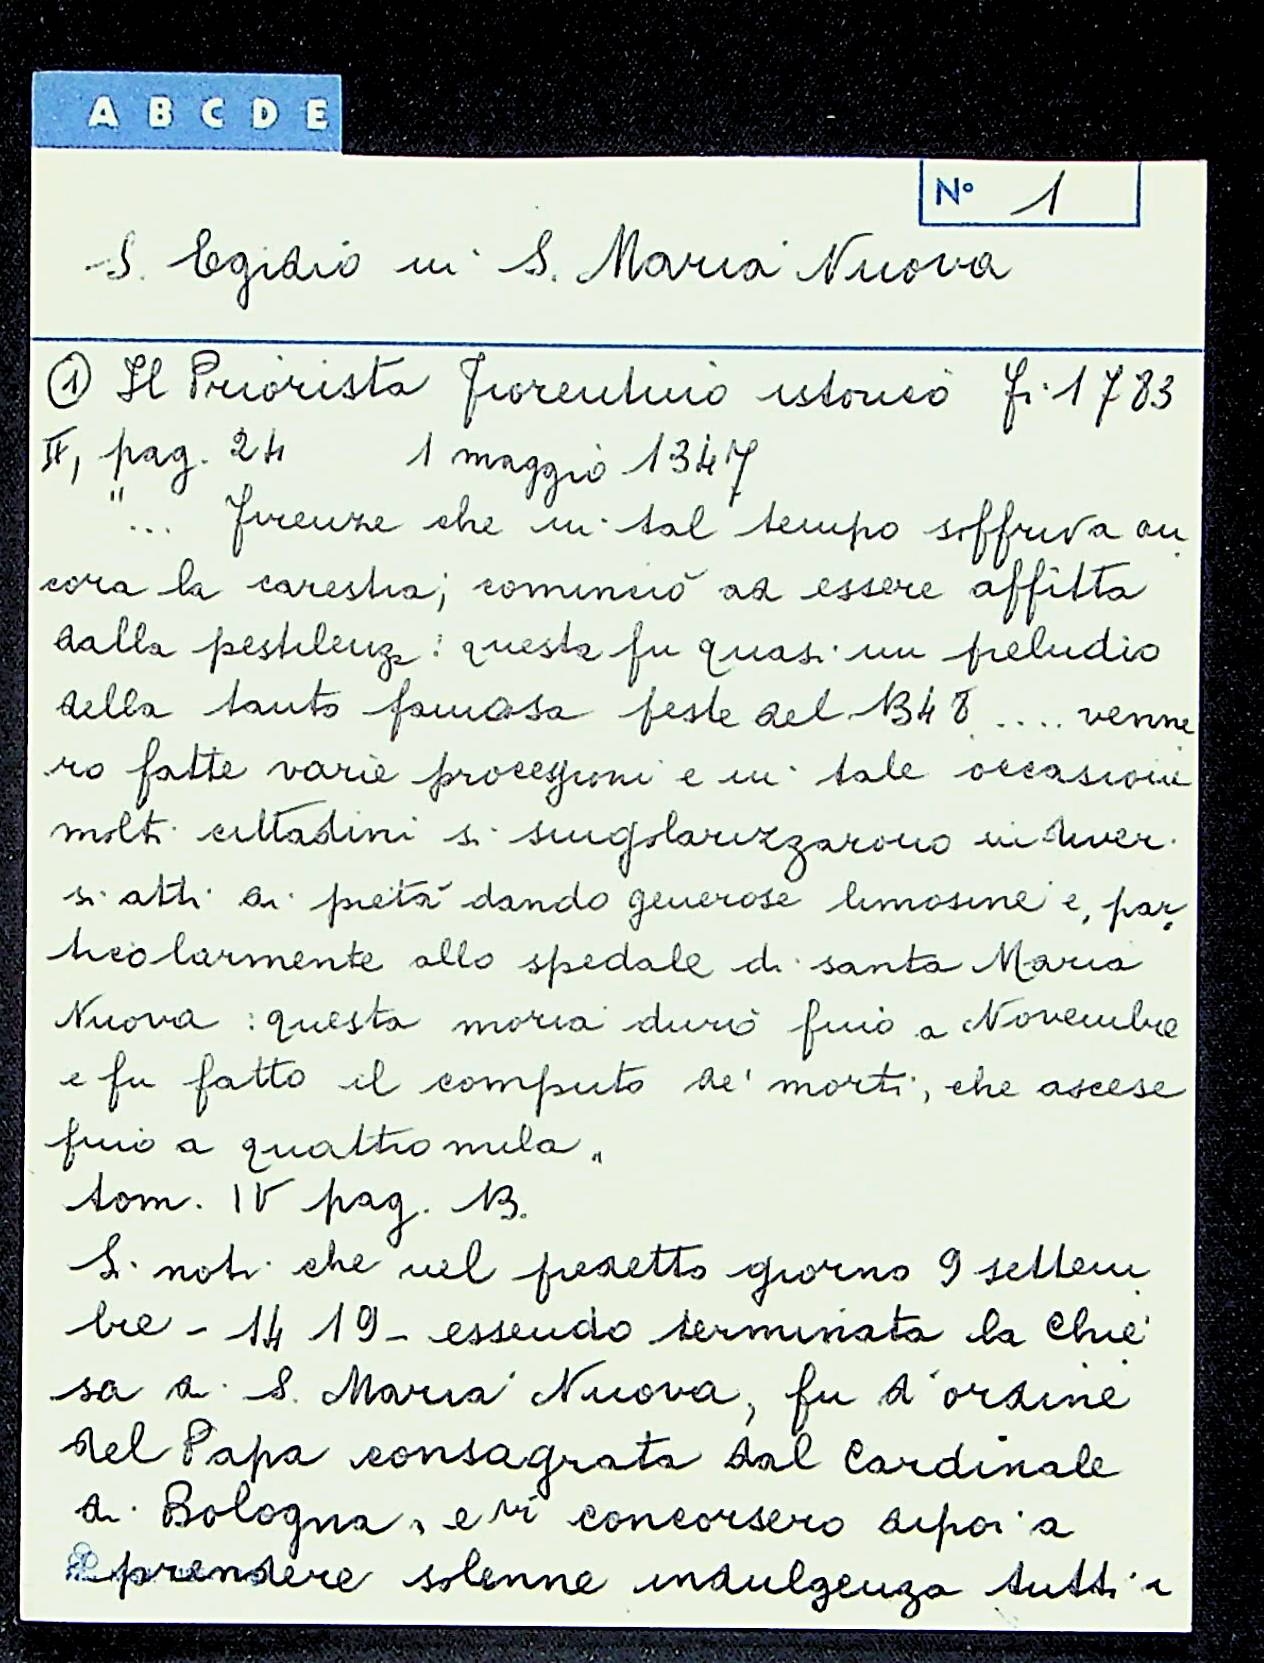 A B C D E
N° 1
S. Egidio in S. Maria Nuova
① Il Priorista Fiorentino istorico Fi. 1783
II, pag. 24 1 maggio 1347
"... Firenze che in tal tempo soffriva an
cora la carestia; cominciò ad essere affitta
dalla pestilenz: questa fu quasi un peludio
della tanto famosa peste del 1348 .... venne
ro fatte varie processioni e in tale occasione
molti cittadini si singolarizzarono in diver
si atti di pietà dando generose limosine e, par
ticolarmente allo spedale di santa Maria
Nuova : questa moria durò fino a Novembre
e fu fatto il computo de' morti, che ascese
fino a quattro mila"
tom. IV pag. 13.
Si noti che nel predetto giorno 9 settem
bre - 1419 - essendo terminata la Chie
sa di S. Maria Nuova, fu d'ordine
del Papa consagrata dal Cardinale
di Bologna, e vi concorsero dipoi a
prendere solenne indulgenza tutti i